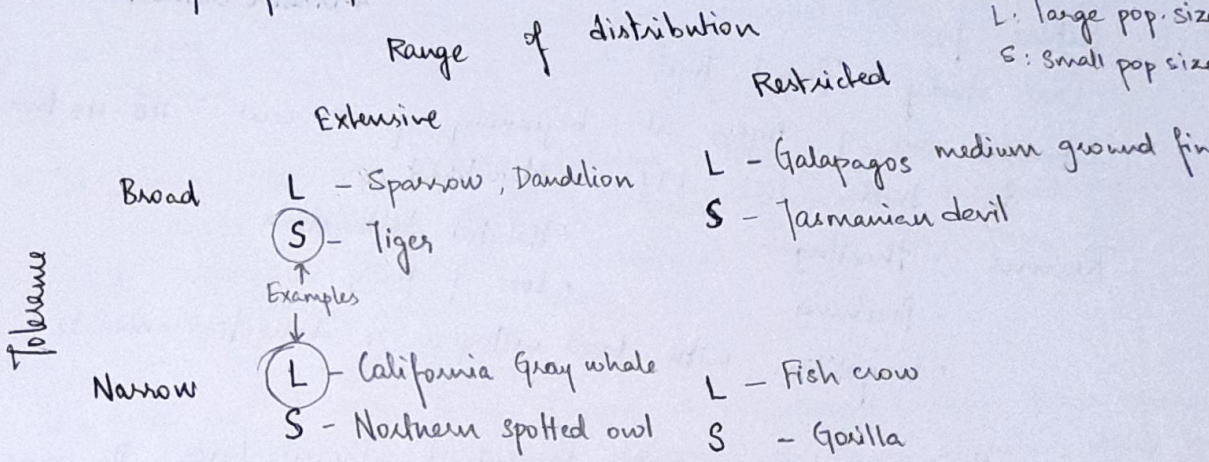 Range of distribution
L: large pop. siz
S: Small pop size
Extensive
Restricted
Broad
L - Sparrow, Dandelion
S - Tiger
L - Galapagos medium ground fin
S - Tasmanian devil
Examples
Tolerance
Narrow
L - California Gray whale
S - Northern spotted owl
L - Fish crow
S - Gorilla